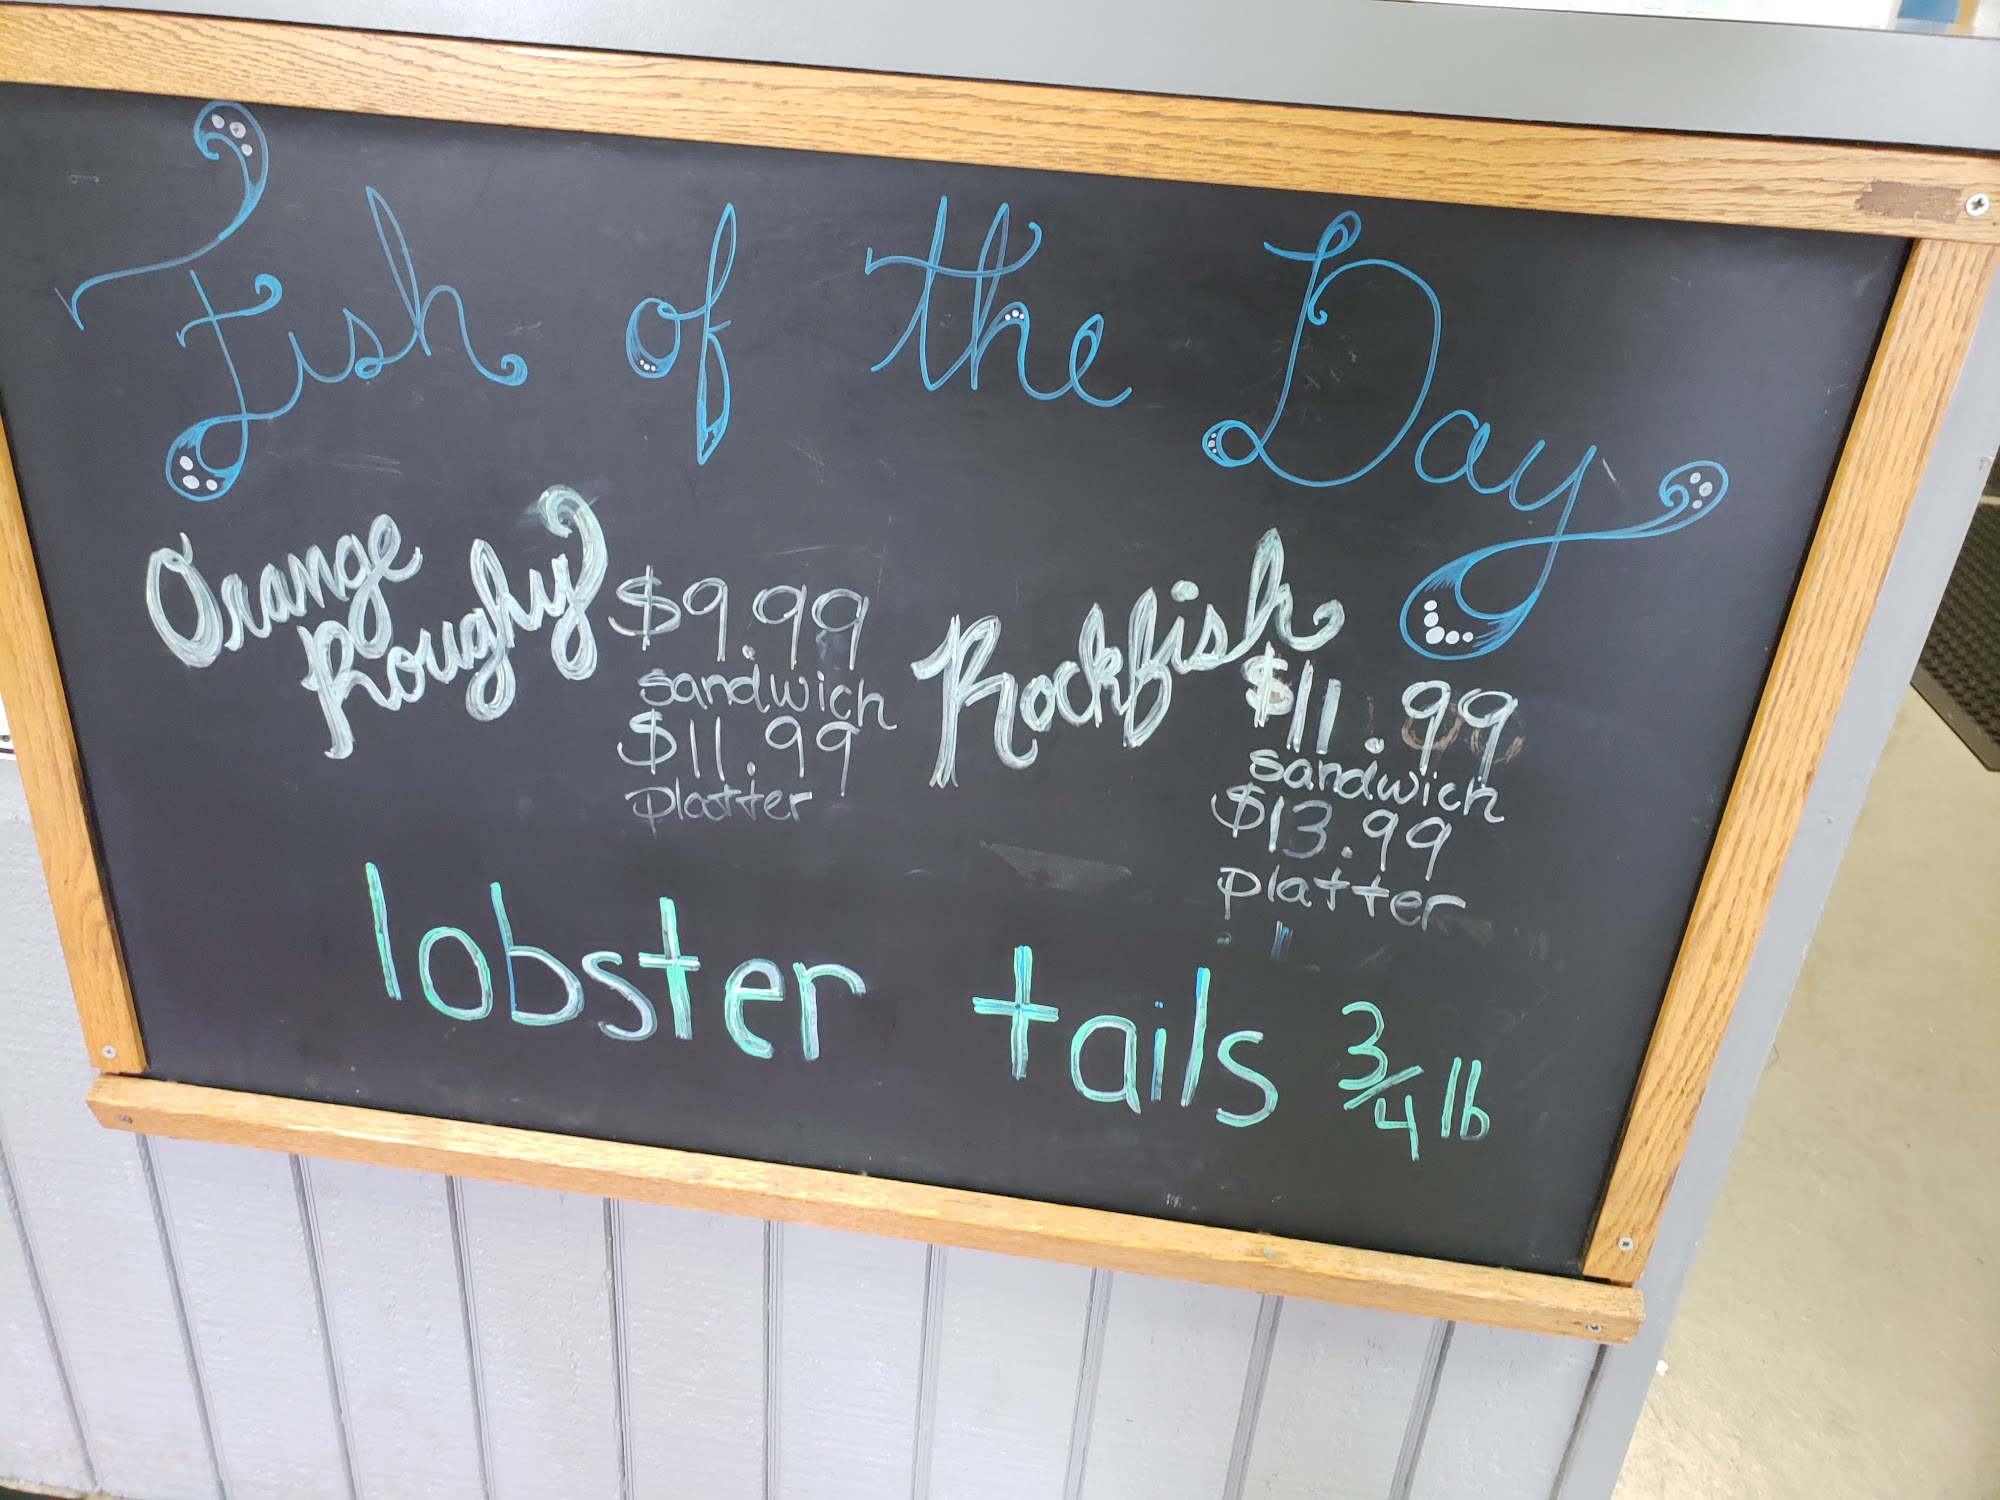 Fish of the Day
Orange
Roughy
$9.99
sandwich
$11.99
platter
Rockfish
$11.99
sandwich
$13.99
platter
lobster tails 3/4 lb